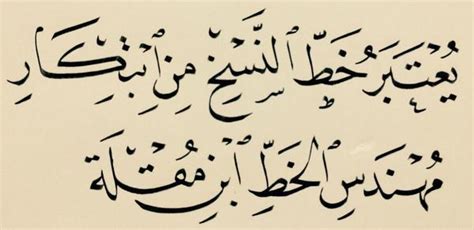 يُعْتَبَرُ خَطُّ النَّسْخِ مِنِ ابْتِكَارِ
مُهَنْدِسِ الخَطِّ ابْنِ مُقْلَةَ